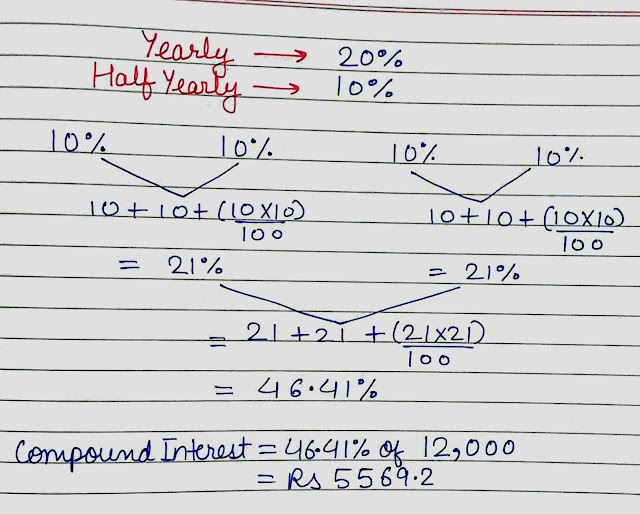 Yearly → 20%
Half Yearly → 10%
10% 10% 10% 10%
10 + 10 + (10X10)/100 10+10+ (10X10)/100
= 21% = 21%
= 21 + 21 + (21X21)/100
= 46.41%
Compound Interest = 46.41% of 12,000
= Rs 5569.2